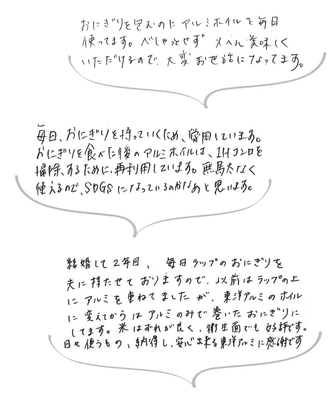 おにぎりを包むのにアルミホイルを毎日
使ってます。べしゃっとせず 大へん美味しく
いただけるので、大変お世話になってます。
毎日、おにぎりを持っていくため、愛用しています。
おにぎりを食べた後のアルミホイルは、IHコンロを
掃除するために、再利用しています。無駄なく
使えるので、SDGSになっているのかなあと思います。
結婚して2年目、毎日ラップのおにぎりを
夫に持たせておりますので、以前はラップの上
にアルミを重ねてましたが、東洋アルミのホイル
に変えてからはアルミのみで巻いたおにぎりに
してます。米はずれが良く、衛生面でも好評です。
日々使うもの、納得し、安心出来る東洋アルミに感謝です